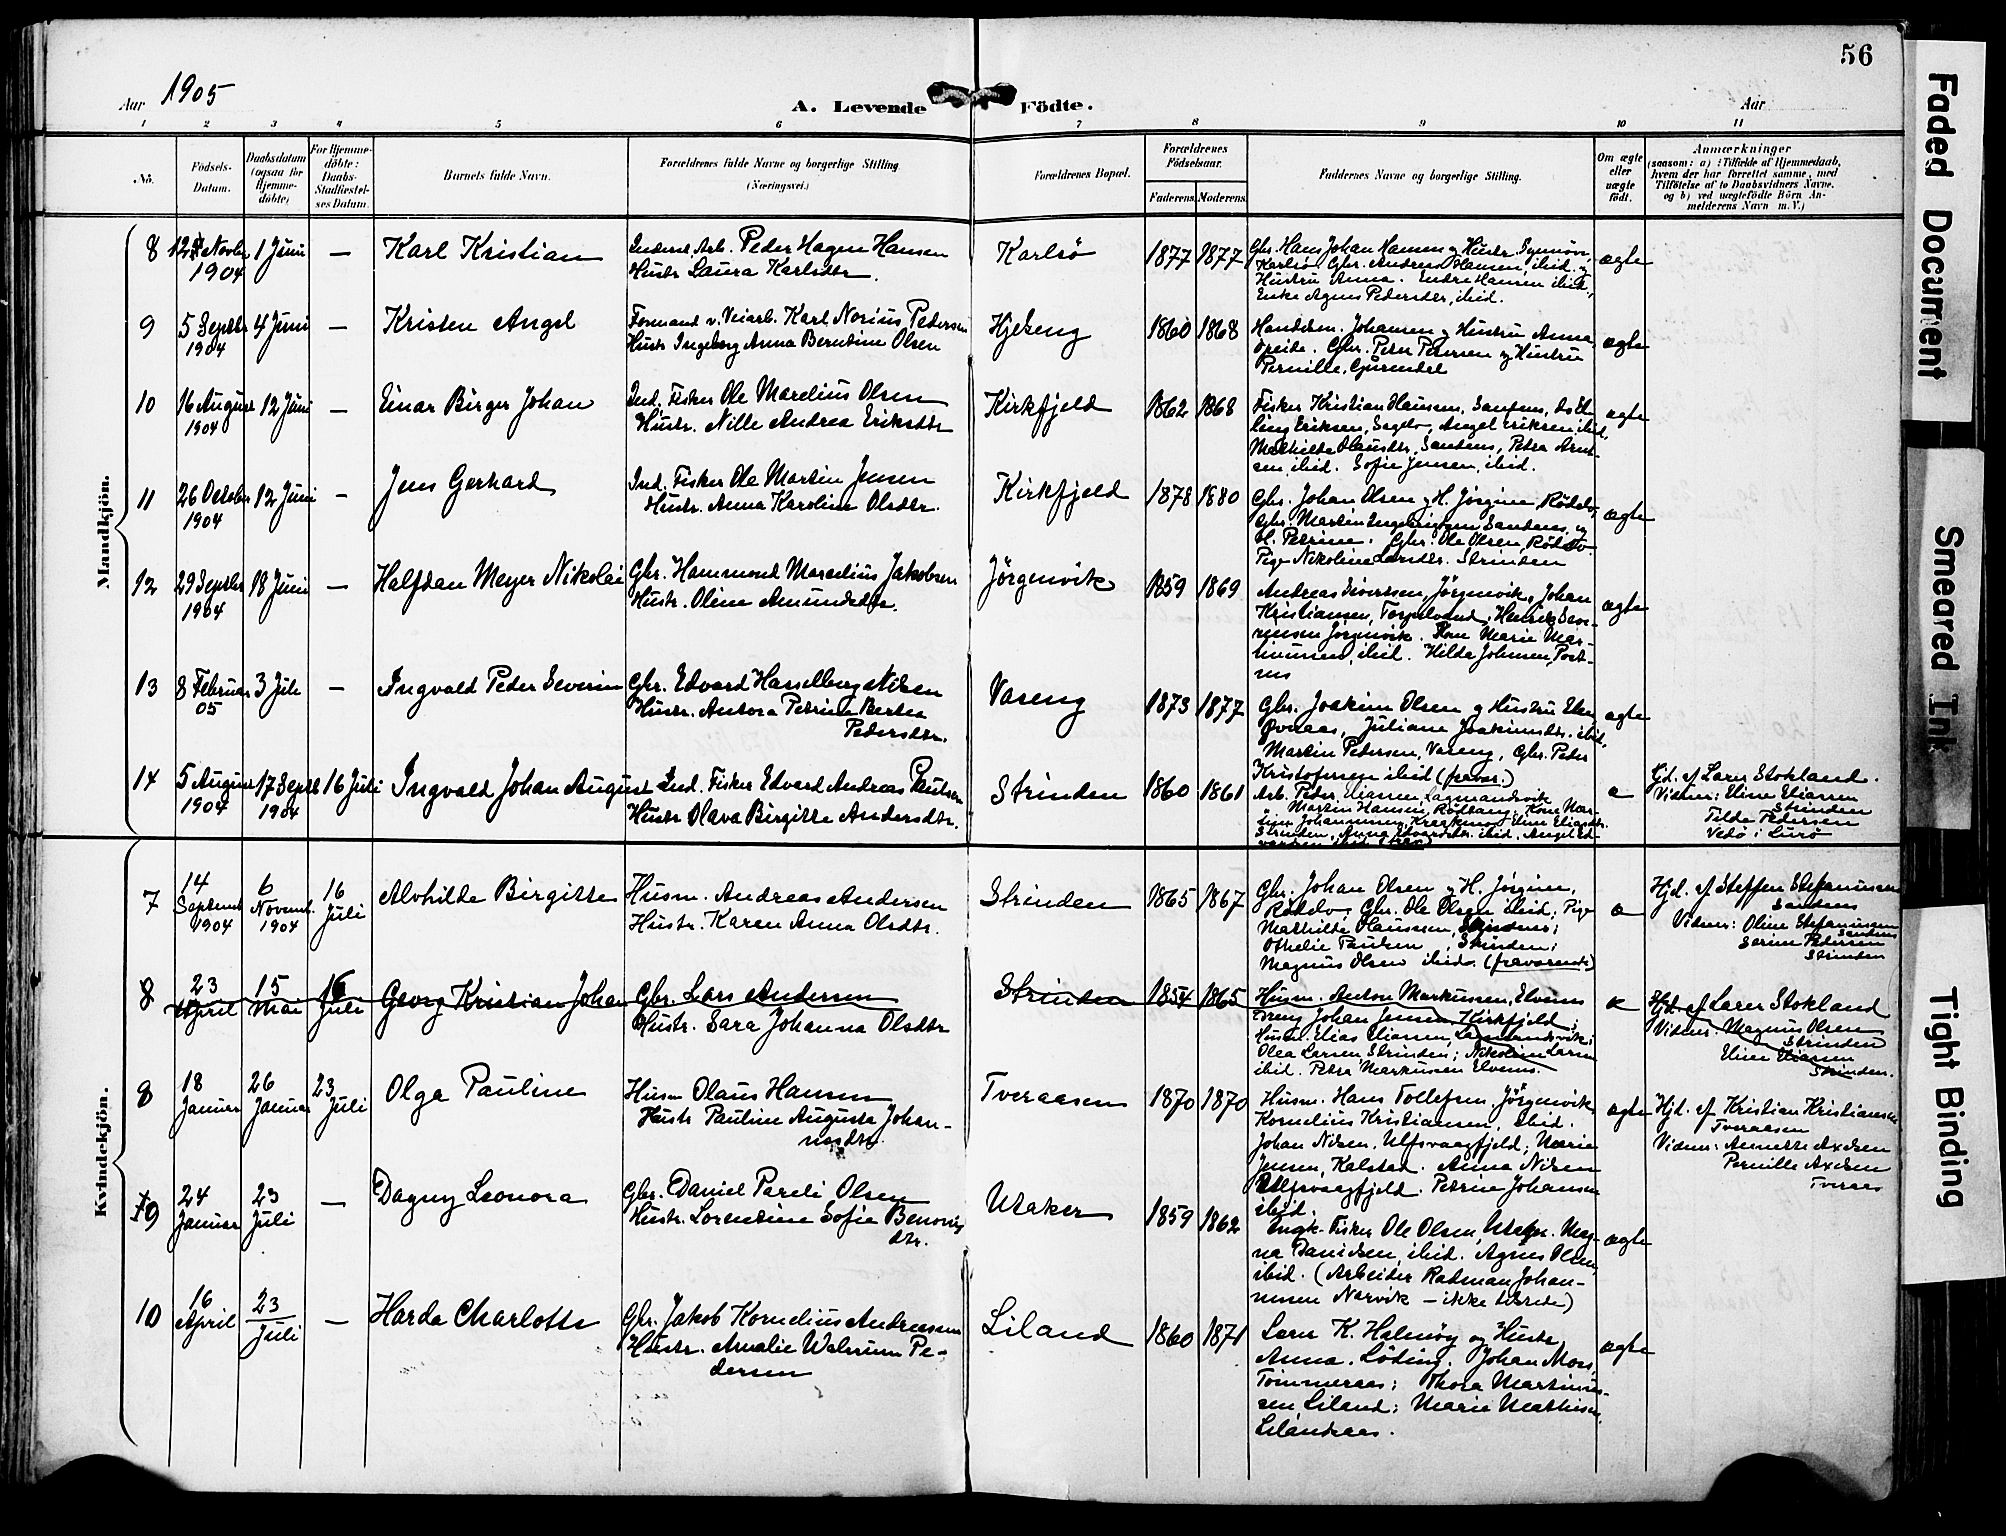 56
Aar 1905
A. Levende Födte.
Aar
1 2 3 4 5 6 7 8 9 10 11
No.
Födsels-
Datum.
Daabsdatum
(ogsaa for
Hjemme-
döbte)
For Hjemme-
döbte:
Daabs-
Stadfæstel-
ses Datum.
Barnets fulde Navn.
Forældrenes fulde Navne og borgerlige Stilling
(Næringsvei.)
Forældrenes Bopæl.
Forældrenes
Födselsaar.
Faderens Moderens
Faddernes Navne og borgerlige Stilling.
Om ægte
eller
uægte
födt.
Anmærkninger
(saasom: a) i Tilfælde af Hjemmedaab,
hvem der har forrettet samme, med
Tilföielse af to Daabsvidners Navne,
og b) ved uægtefödte Börn An-
melderens Navn m. V.)
Mandkjön.
8 12 Novbr 1904 1 Juni — Karl Kristian
Inderst, Arb. Peder Hagen Hansen
Hustr Laura Karlsdtr.
Karlsö 1877 1877
Gbr. Hans Johan Hansen og Hustr.
Karlsö. Gbr. Andreas Hansen, ibid. og
Hustru Anna. Endre Hansen ibid,
Enke Agnes Pedersdtr, ibid.
ægte
9 5 Septbr 1904 4 Juni — Kristen Angel
Formand v. Veiarb. Karl Norius Pedersen
Hustr Ingeborg Anna Berntine Olsen
Hjelseng 1860 1868
Handelsm. Johansen og Hustru Anna
Opeide. Gbr. Peter Petersen og Hustru
Pernille,
ægte
10 16 August 1904 12 Juni — Einar Birger Johan
Ind. Fisker Ole Marelius Olsen
Hustr. Nille Andrea Eriksdtr
Kirkfjeld 1862 1868
Fisker Kristian Hansen, Sandnes,
Eriksen, Angel Eriksen ibid,
Mathilde Olausdtr, Sandnes, Petra Arnt-
sen, ibid. Sofie Jensen, ibid.
ægte
11 26 October 1904 12 Juni — Jens Gerhard
Ind. Fisker Ole Martin Jensen
Hustr. Anna Karoline Olsdtr.
Kirkfjeld 1878 1880
Gbr. Johan Olsen og H. Jørgine, Rødelv,
Gbr. Martin Sandnes og
H. Petrine. Gbr. Ole Olsen, Rødelv
Pige Nikoline Larsdtr. Strinden
ægte
12 29 Septbr 1904 18 Juni — Halfdan Meyer Nikolai
Gbr. Hammond Marselius Jakobsen
Hustr. Oline Amundsdtr.
Jörgenvik 1859 1869
Andreas Sivertsen, Jörgenvik, Johan
Kristiansen, Henrik Seve-
rinsen Jörgenvik. Kone Marie Mar-
tinussen, ibid. Hilda Johnsen, Post-
nes
ægte
13 8 Februar 05 3 Juli — Ingvald Peder Severin
Gbr. Edvard Hasselberg Nilsen
Hustr. Antora Petrine Bertea
Pedersdtr.
Vaseng 1873 1877
Gbr. Joakim Olsen og Hustru Elen
Juliane Joakimsdtr. ibid,
Martin Pedersen, Vaseng, Gbr. Peder
Kristofersen ibid (fravær.)
ægte
14 5 August 1904 17 Septbr 1904 16 Juli Ingvald Johan August
Ind. Fisker Edvard Andreas Paulsen
Hustr Olava Birgitte Andersdtr.
Strinden 1860 1861
Arb. Peder Eliassen, Lagmandsvik
Martin Hansen, Rödtang, Kone Mar-
Johannesen, Kraakmo, Eline Eliasdtr.
Strinden, Anna Edvardsdtr. ibid. Angel Ed-
vardsen ibid
æ
Hjd. af Lærer Stokland.
Vidner: Eline Eliassen
Strinden
Tilde Pedersen
Vedö i Lurö
Kvindekjön.
7 14 Septemb 1904 6 Novemb. 1904 16 Juli Alvhilde Birgitte
Husm. Andreas Andersen
Hustr. Karen Anna Olsdtr.
Strinden 1865 1867
Gbr. Johan Olsen og H. Jørgine,
Rödelv; Gbr. Ole Olsen ibid; Pige
Mathilde Olaussen, Sandnes;
Othelie Paulsen, Strinden;
Magnus Olsen ibid. (fraværende)
æ
Hjd. af Steffen Stefanussen
Sandnes
Vidner: Oline Stefanussen
Sandnes
Serine Pedersen
Strinden
8 23 April 15 Mai 16 Juli Georg Kristian Johan
Gbr. Lars Andersen
Hustr. Sara Johanna Olsdtr
Strinden 1854 1865
Husm. Anton Markussen, Elvenes
Dreng Johan Jensen Kirkfjeld;
Husm. Elias Eliassen, Lagmandsvik;
Olea Larsen, Strinden; Nikoline Larsen
ibid. Petra Markussen Elvenes.
æ
Hjd. af Lærer Stokland
Vidner: Magnus Olsen
Strinden
Eline Eliassen
Strinden.
8 18 Januar 26 Januar 23 Juli Olga Pauline
Husm Olaus Hansen
Hustr Pauline Augusta Johan-
nesdtr.
Tveraasen 1870 1870
Husm. Hans Tollefsen, Jörgenvik
Kornelius Kristiansen, ibid.
Johan Nilsen, Ulfsvaagfjeld; Marie
Jensen, Kalstad. Anna Nilsen
Ulfsvaagfjeld. Petrine Johansen
ibid.
ægte
Hjd. af Kristian Kristiansen
Tveraasen
Vidner: Annette Axelsen
Pernille Axelsen
Tveraas
9 24 Januar 23 Juli — Dagny Leonora
Gbr. Daniel Pareli Olsen
Hustr. Lorentine Sofie Benonis
dtr.
Utaker 1859 1862
Ungk. Fisker Ole Olsen, Utaker. Mag-
na Danielsen, ibid. Agnes Olsen,
ibid. (Arbeider Radman Johan-
nesen Narvik — ikke tilstede)
ægte
10 16 April 23 Juli — Harda Charlotte
Gbr. Jakob Kornelius Andreassen
Hustr. Amalie Pe-
dersen
Liland 1860 1871
Lærer K. Halmöy og Hustr
Anna. Löding. Johan Mosi
Tömmeraas; Thora Martinus-
sen Liland; Marie Mathisen,
Lilandsaas.
ægte
Faded Document
Smeared Ink
Tight Binding